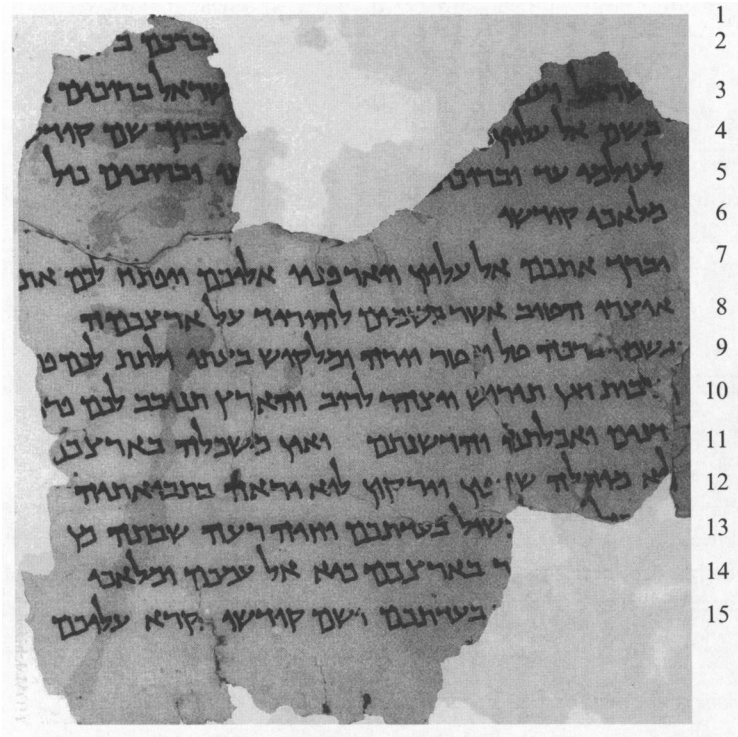 1
2 וברכם ב
3 ישראל וענ שראל ברוכים
4 בשם אל עליון וברוך שם קודש
5 לעולמי עד וברוכ וברוכים כול
6 מלאכי קודשו
7 יברך אתכם אל עליון ויאר פניו אליכם ויפתח לכם את
8 אוצרו הטוב אשר בשמים להוריד על ארצכמה
9 גשמי ברכה טל ומטר יורה ומלקוש בעתו ולתת לכם פ
10 תנובות דגן תירוש ויצהר לרוב והארץ תנובב לכם פר
11 דנים ואכלתם והדשנתם ואין משכלה בארצכ
12 לא מוחלה שדפון וירקון לוא יראה בתבואתיה
13 שול בעדתכם וחיה רעה שבתה מן
14 ר בארצכם כיא אל עמכם ומלאכי
15 בעדתכם ושם קודשו נקרא עליכם